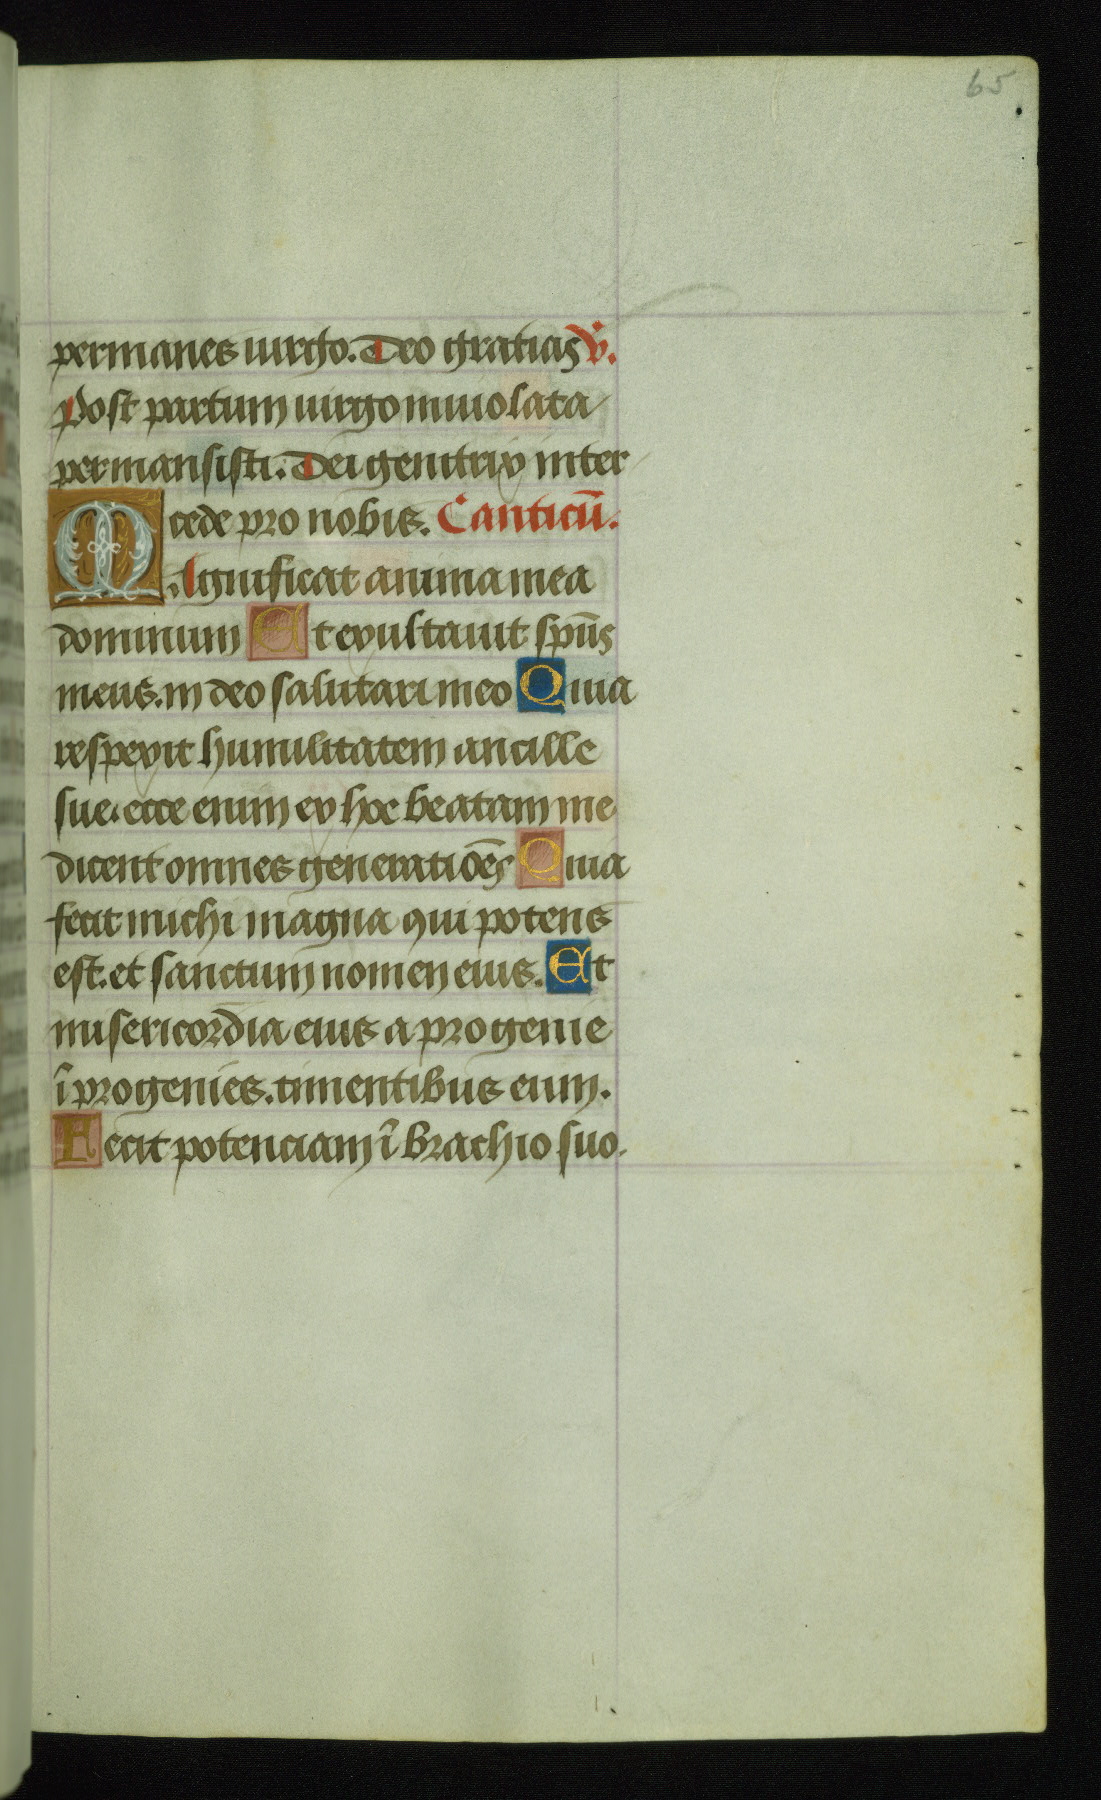 65
permanes uirgo. Deo gratias V̇.
Post partum uirgo inuiolata
permansisti. Dei genitrix inter
cede pro nobis. Canticū.
MAgnificat anima mea
dominum Et exultauit spūs
meus. in deo salutari meo Quia
respexit humilitatem ancille
sue. ecce enim ex hoc beatam me
dicent omnes generatiōes Quia
fecit michi magna qui potens
est. et sanctum nomen eius. Et
misericordia eius a progenie
ī progenies. timentibus eum.
Fecit potenciam ī brachio suo.